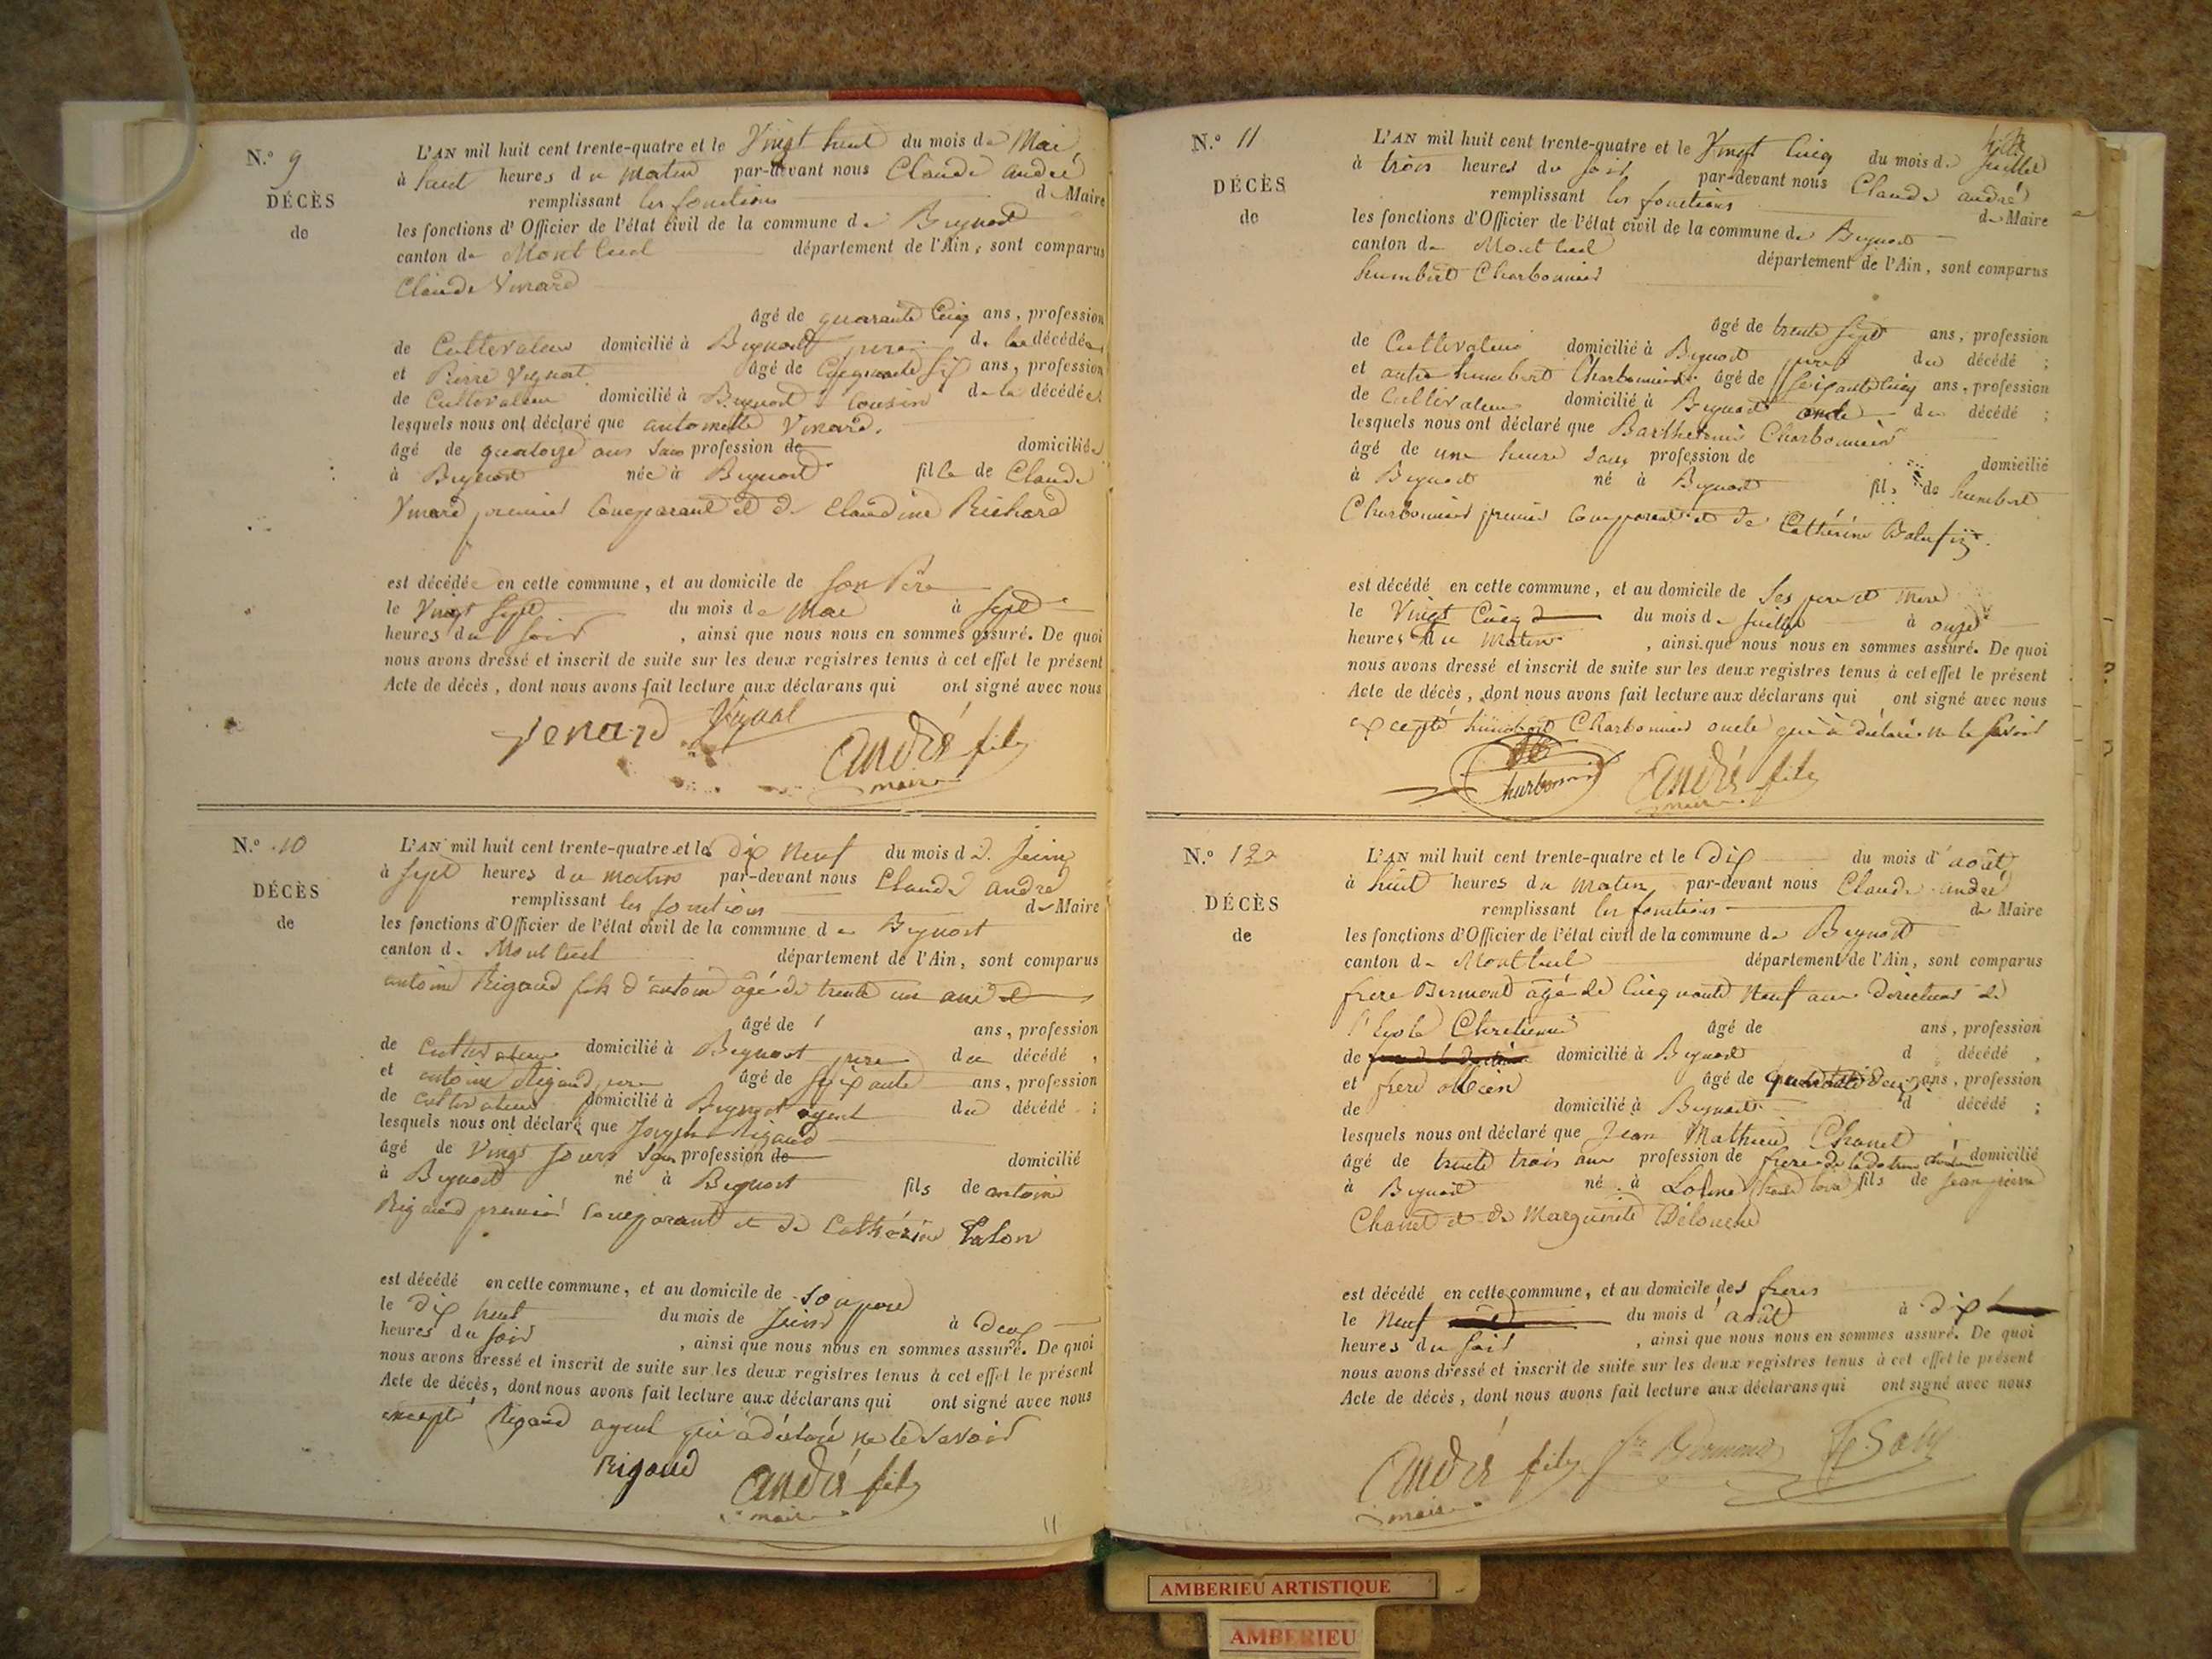 N.° 9
DÉCÈS
de
L'AN mil huit cent trente-quatre et le Vingt huit du mois de Mai
à huit heures du matin par-devant nous Claude andré
remplissant les fonctions de Maire
les fonctions d'Officier de l'état civil de la commune de Beynost
canton de Montluel département de l'Ain, sont comparus
Claude Vinard
âgé de quarante Cinq ans, profession
de Cultivateur domicilié à Beynost pere de la décédée
et Pierre Vignat âgé de Cinquante six ans, profession
de Cultivateur domicilié à Beynost cousin de la décédée
lesquels nous ont déclaré que antoinette Vinard.
âgé de quatorze ans sans profession de domiciliée
à Beynost née à Beynost fille de Claude
Vinard premier Comparant et de Claudine Richard
est décédée en cette commune, et au domicile de son Père
le Vingt sept du mois de Mai à sept
heures du soir, ainsi que nous nous en sommes assuré. De quoi
nous avons dressé et inscrit de suite sur les deux registres tenus à cet effet le présent
Acte de décès, dont nous avons fait lecture aux déclarans qui ont signé avec nous
Venard Vignat andré fils
maire
N.° 10
DÉCÈS
de
L'AN mil huit cent trente-quatre et le dix Neuf du mois de Juin
à sept heures du matin par-devant nous Claude andré
remplissant les fonctions de Maire
les fonctions d'Officier de l'état civil de la commune de Beynost
canton de Montluel département de l'Ain, sont comparus
antoine Rigaud fils d'antoine agé de trente un ans et
âgé de ans, profession
de cultivateur domicilié à Beynost pere du décédé,
et antoine Rigaud pere âgé de soixante ans, profession
de cultivateur domicilié à Beynost ayeul du décédé;
lesquels nous ont déclaré que Joseph Rigaud
âgé de Vingt jours sans profession de domicilié
à Beynost né à Beynost fils de antoine
Rigaud premier Comparant et de Cathérine
est décédé en cette commune, et au domicile de son pere
le dix huit du mois de Juin à deux
heures du soir, ainsi que nous nous en sommes assuré. De quoi
nous avons dressé et inscrit de suite sur les deux registres tenus à cet effet le présent
Acte de décès, dont nous avons fait lecture aux déclarans qui ont signé avec nous
excepté Rigaud ayeul qui a déclaré ne le savoir
Rigaud andré fils
maire
11
N.° 11
DÉCÈS
de
L'AN mil huit cent trente-quatre et le Vingt Cinq du mois de Juillet
à trois heures du soir par-devant nous Claude andré
remplissant les fonctions de Maire
les fonctions d'Officier de l'état civil de la commune de Beynost
canton de Montluel département de l'Ain, sont comparus
humbert Charbonnier
âgé de trente sept ans, profession
de Cultivateur domicilié à Beynost pere du décédé;
et autre humbert Charbonnier âgé de soixante Cinq ans, profession
de Cultivateur domicilié à Beynost oncle du décédé;
lesquels nous ont déclaré que Barthelemi Charbonnier
âgé de une heure sans profession de domicilié
à Beynost né à Beynost fils de humbert
Charbonnier premier Comparant et de Cathérine
est décédé en cette commune, et au domicile de ses pere et mere
le Vingt Cinq du mois de juillet à onze
heures du Matin, ainsi que nous nous en sommes assuré. De quoi
nous avons dressé et inscrit de suite sur les deux registres tenus à cet effet le présent
Acte de décès, dont nous avons fait lecture aux déclarans qui ont signé avec nous
excepté humbert Charbonnier oncle qui à déclaré ne le savoir
Charbonnier andré fils
maire
N.° 12
DÉCÈS
de
L'AN mil huit cent trente-quatre et le dix du mois d'août
à huit heures du Matin par-devant nous Claude andré
remplissant les fonctions de Maire
les fonctions d'Officier de l'état civil de la commune de Beynost
canton de Montluel département de l'Ain, sont comparus
frere Bermond âgé de Cinquante Neuf ans directeur de
l'Ecole Chretienne âgé de ans, profession
de domicilié à Beynost d décédé,
et frere âgé de ans, profession
de domicilié à Beynost d décédé;
lesquels nous ont déclaré que Jean Mathieu Chanet
âgé de trente trois ans profession de frere de la doctrine domicilié
à Beynost né à fils de Jean pierre
Chanet et de Marguerite
est décédé en cette commune, et au domicile des freres
le Neuf du mois d'août à dix
heures du soir, ainsi que nous nous en sommes assuré. De quoi
nous avons dressé et inscrit de suite sur les deux registres tenus à cet effet le présent
Acte de décès, dont nous avons fait lecture aux déclarans qui ont signé avec nous
andré fils fre Bermond
maire
AMBERIEU ARTISTIQUE
AMBERIEU